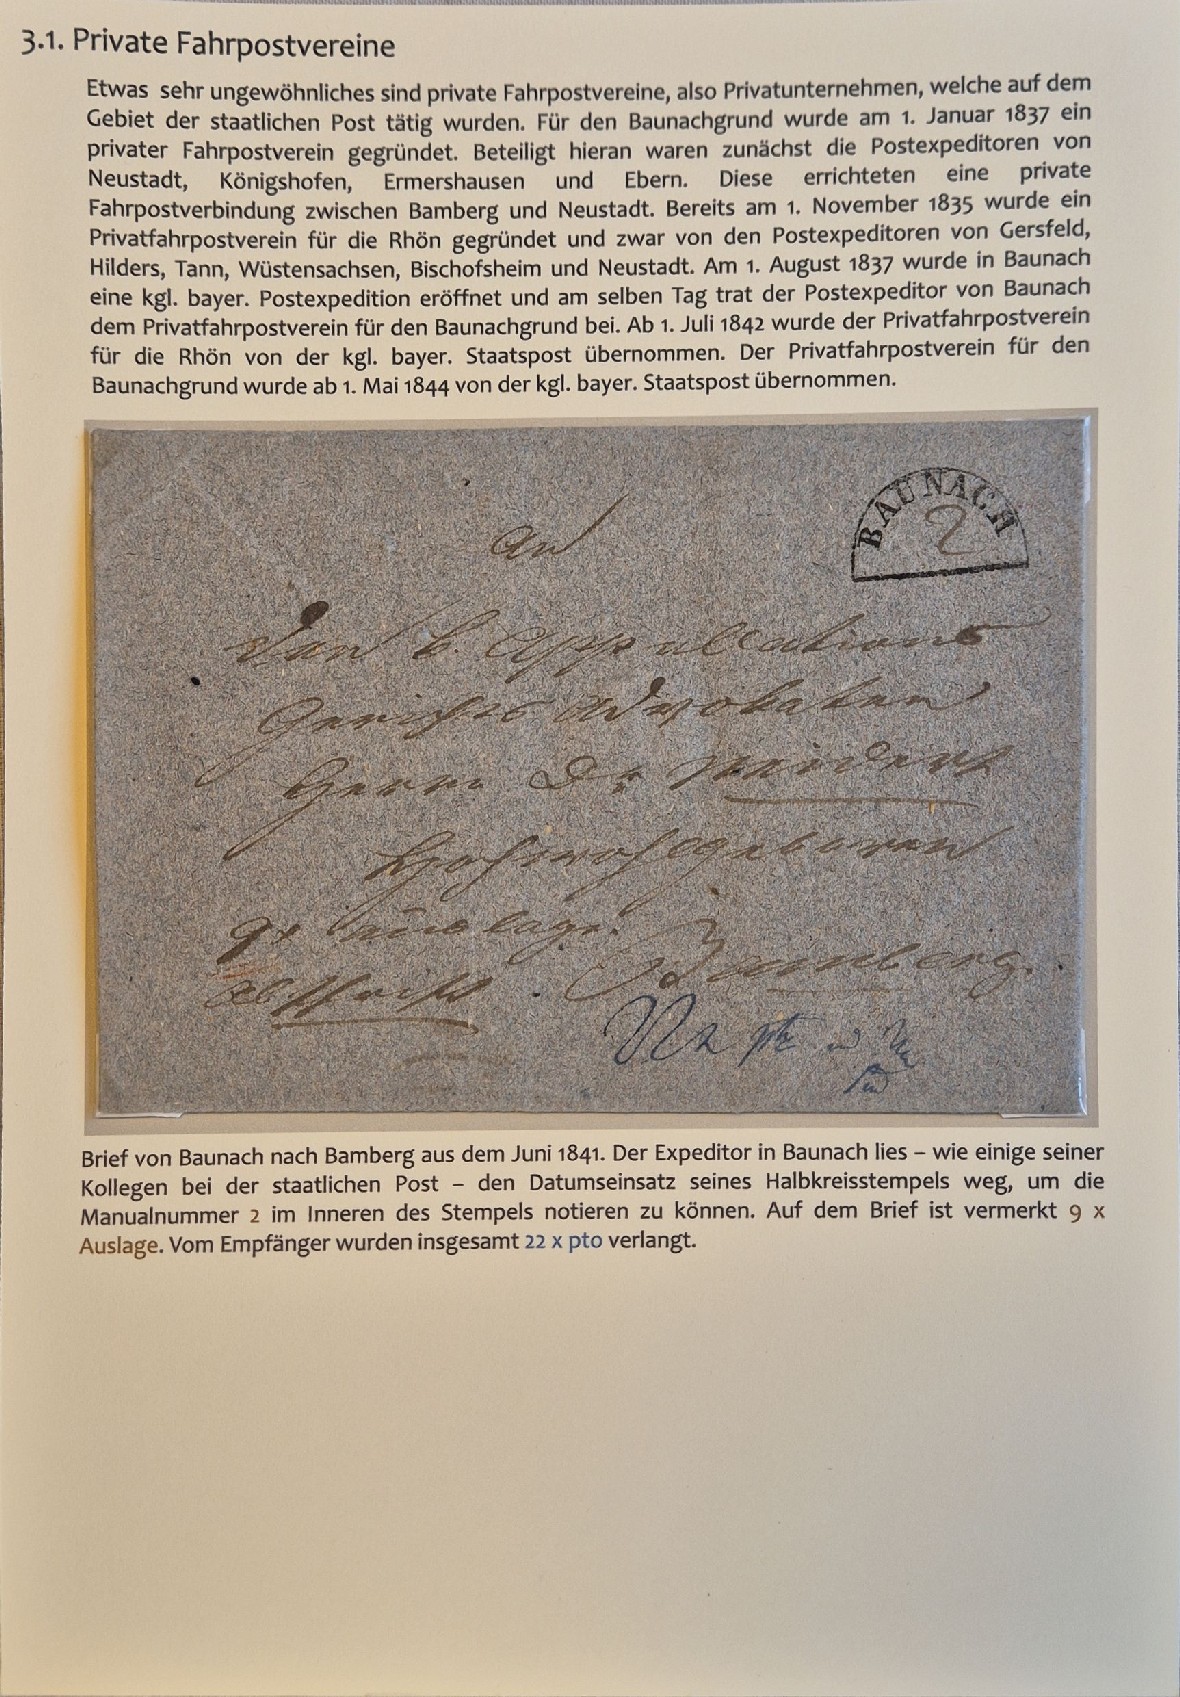 3.1. Private Fahrpostvereine
Etwas sehr ungewöhnliches sind private Fahrpostvereine, also Privatunternehmen, welche auf dem
Gebiet der staatlichen Post tätig wurden. Für den Baunachgrund wurde am 1. Januar 1837 ein
privater Fahrpostverein gegründet. Beteiligt hieran waren zunächst die Postexpeditoren von
Neustadt, Königshofen, Ermershausen und Ebern. Diese errichteten eine private
Fahrpostverbindung zwischen Bamberg und Neustadt. Bereits am 1. November 1835 wurde ein
Privatfahrpostverein für die Rhön gegründet und zwar von den Postexpeditoren von Gersfeld,
Hilders, Tann, Wüstensachsen, Bischofsheim und Neustadt. Am 1. August 1837 wurde in Baunach
eine kgl. bayer. Postexpedition eröffnet und am selben Tag trat der Postexpeditor von Baunach
dem Privatfahrpostverein für den Baunachgrund bei. Ab 1. Juli 1842 wurde der Privatfahrpostverein
für die Rhön von der kgl. bayer. Staatspost übernommen. Der Privatfahrpostverein für den
Baunachgrund wurde ab 1. Mai 1844 von der kgl. bayer. Staatspost übernommen.
BAUNACH
2
An
den k. Appellations
Gerichts Advokaten
Herrn Dr
Hochwohlgeboren
9x Auslage.
Bamberg.
Brief von Baunach nach Bamberg aus dem Juni 1841. Der Expeditor in Baunach lies – wie einige seiner
Kollegen bei der staatlichen Post – den Datumseinsatz seines Halbkreisstempels weg, um die
Manualnummer 2 im Inneren des Stempels notieren zu können. Auf dem Brief ist vermerkt 9 x
Auslage. Vom Empfänger wurden insgesamt 22 x pto verlangt.